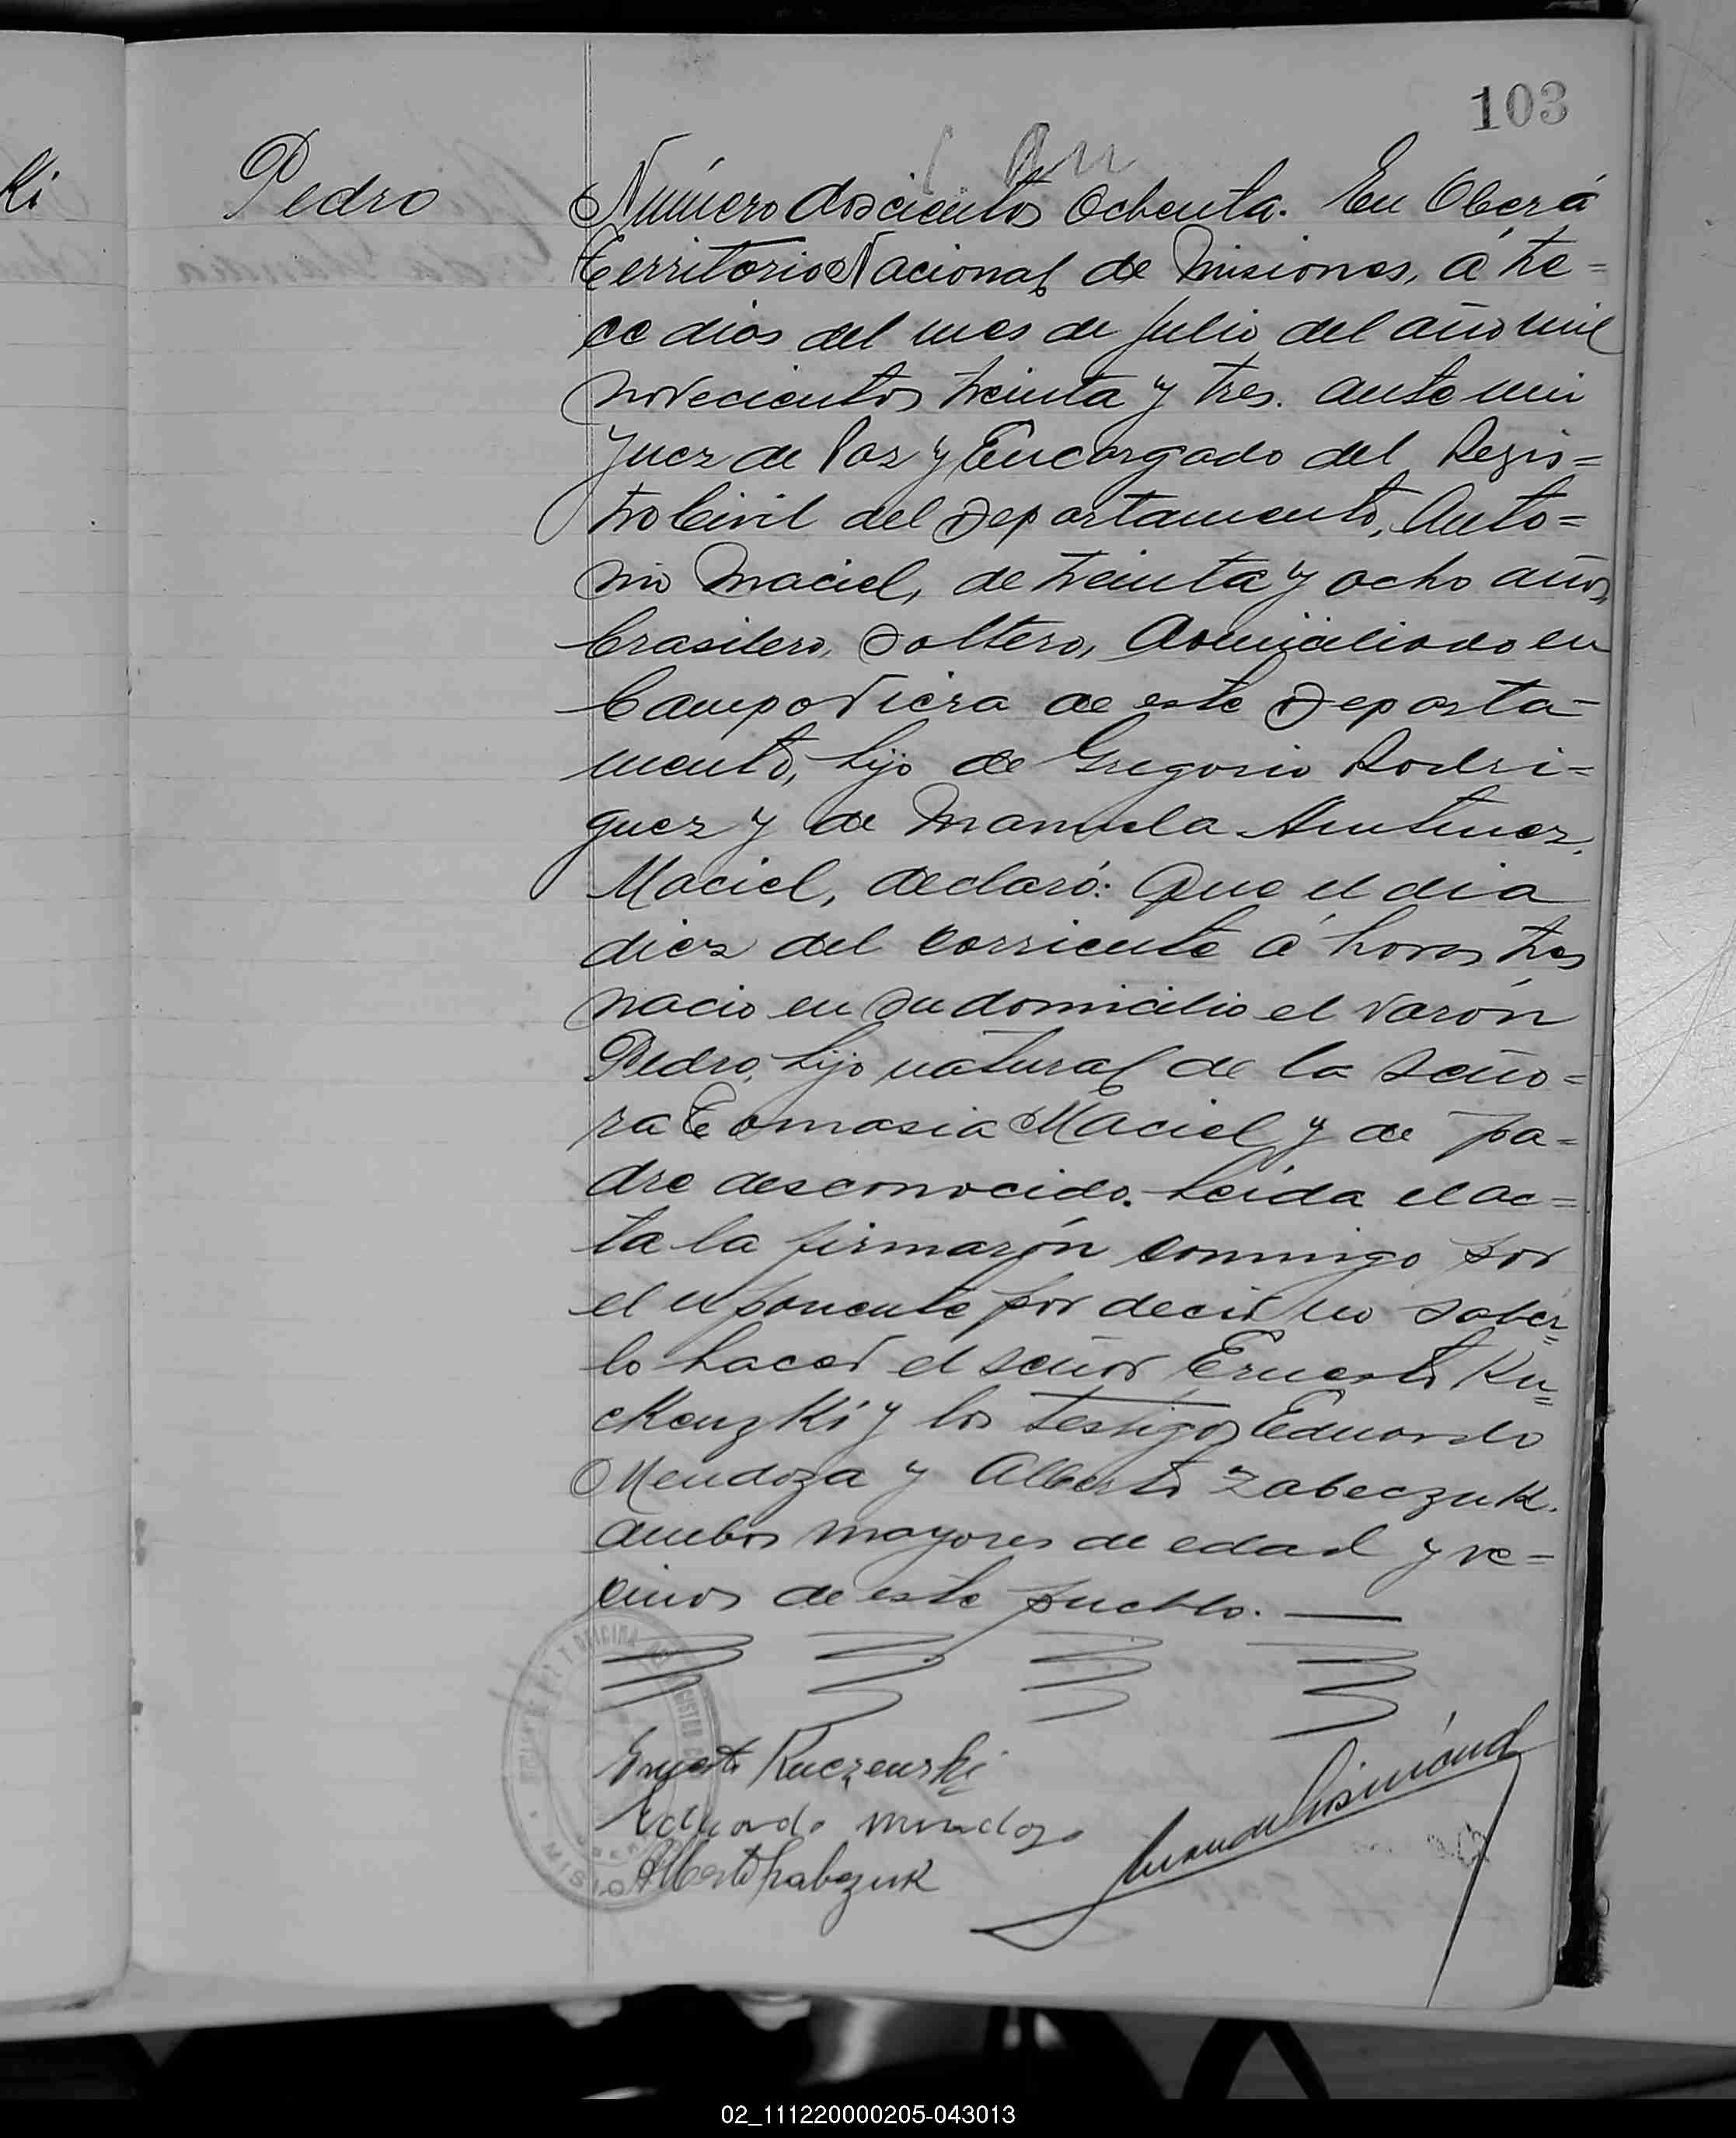 103
ki
Pedro
Número doscientos ochenta. En Oberá
Territorio Nacional de Misiones, á tre=
ce dias del mes de Julio del año mil
novecientos treinta y tres. ante mi
Juez de Paz y Encargado del Regis=
tro Civil del Departamento, Anto=
nio Maciel, de treinta y ocho años,
brasilero, soltero, domiciliado en
Campo Viera de este Departa-
mento, hijo de Gregorio Rodri=
guez y de Manuela
Maciel, declaró: Que el dia
diez del corriente á horas tres
nació en su domicilio el varón
Pedro, hijo natural de la seño=
ra Tomasia Maciel y de pa=
dre desconocido. Leida el ac=
ta la firmarón conmigo por
el exponente por decir no saber=
lo hacer el señor Ernesto Ku=
ckenzki y los testigos Eduardo
Mendoza y Alberto Zabeczuk.
ambos mayores de edad y ve=
cinos de este pueblo.
Ernesto Kuczenski
Eduardo Mendoza
Alberto Zabczuk
OFICINA
MISIONES
02_111220000205-043013